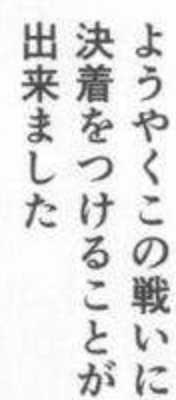 ようやくこの戦いに
決着をつけることが
出来ました